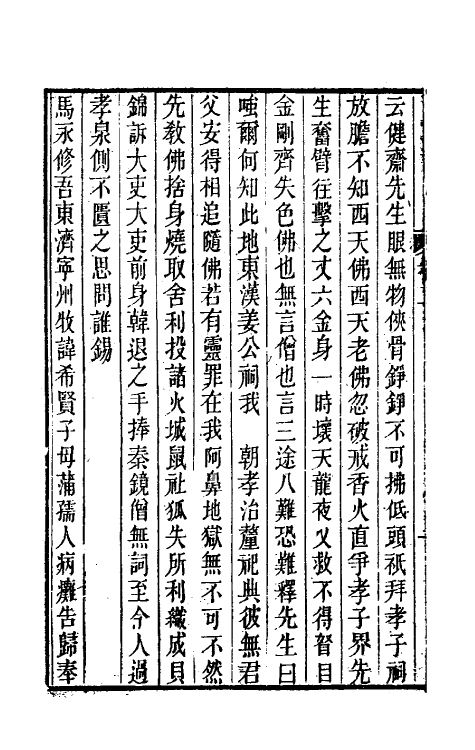 云健齋先生眼無物俠骨錚錚不可拂低頭祇拜孝子祠
放膽不知西天佛西天老佛忽破戒香火直爭孝子界先
生奮臂往擊之丈六金身一時壞天龍夜乂救不得瞀目
金剛齊失色佛也無言僧也言三途八難恐難釋先生曰
嗤爾何知此地東漢姜公祠我　朝孝治釐祀典彼無君
父安得相追隨佛若有靈罪在我阿鼻地獄無不可不然
先教佛捨身燒取舍利投諸火城鼠社狐失所利纖成貝
錦訴大吏大吏前身韓退之手捧秦鏡僧無詞至今人過
孝泉側不匱之思問誰錫
馬永修吾東濟寧州牧諱希賢子母蒲孺人病癱告歸奉